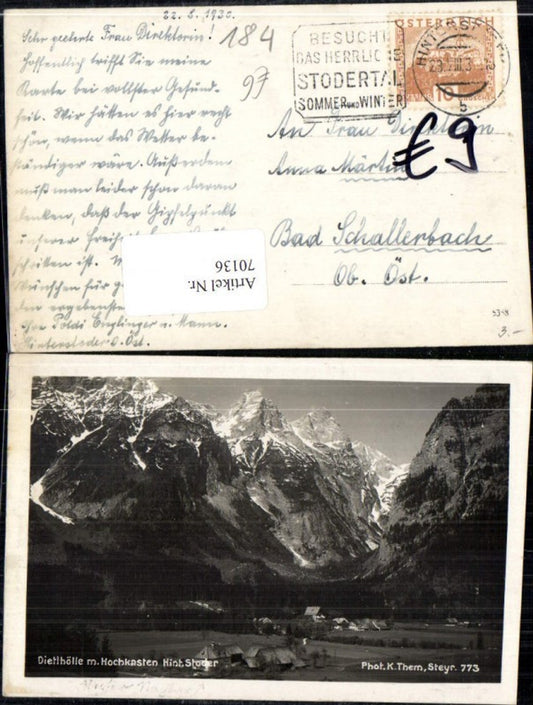 22. 8. 1930.
Sehr geehrte Frau Direktorin!
Hoffentlich trifft Sie meine
Karte bei vollster Gesund-
heit. Wir hätten es hier recht
schön, wenn das Wetter be-
ständiger wäre. Außerdem
muß man leider schon daran
denken, daß der Gipfelpunkt
unserer
schritten ist.
Wünschen für
der ergebenste
Poldi Englinger u. Mann.
Hinterstoder O. Öst.
184
97
BESUCHT
DAS HERRLICHE
STODERTAL
SOMMER UND WINTER
ÖSTERREICH
10
An Frau Direktorin
Anna Märtin
€ 9
Bad Schallerbach
Ob. Öst.
Artikel Nr.
70136
3.-
Dietlhölle m. Hochkasten Hint. Stoder
Phot. K. Them, Steyr. 773